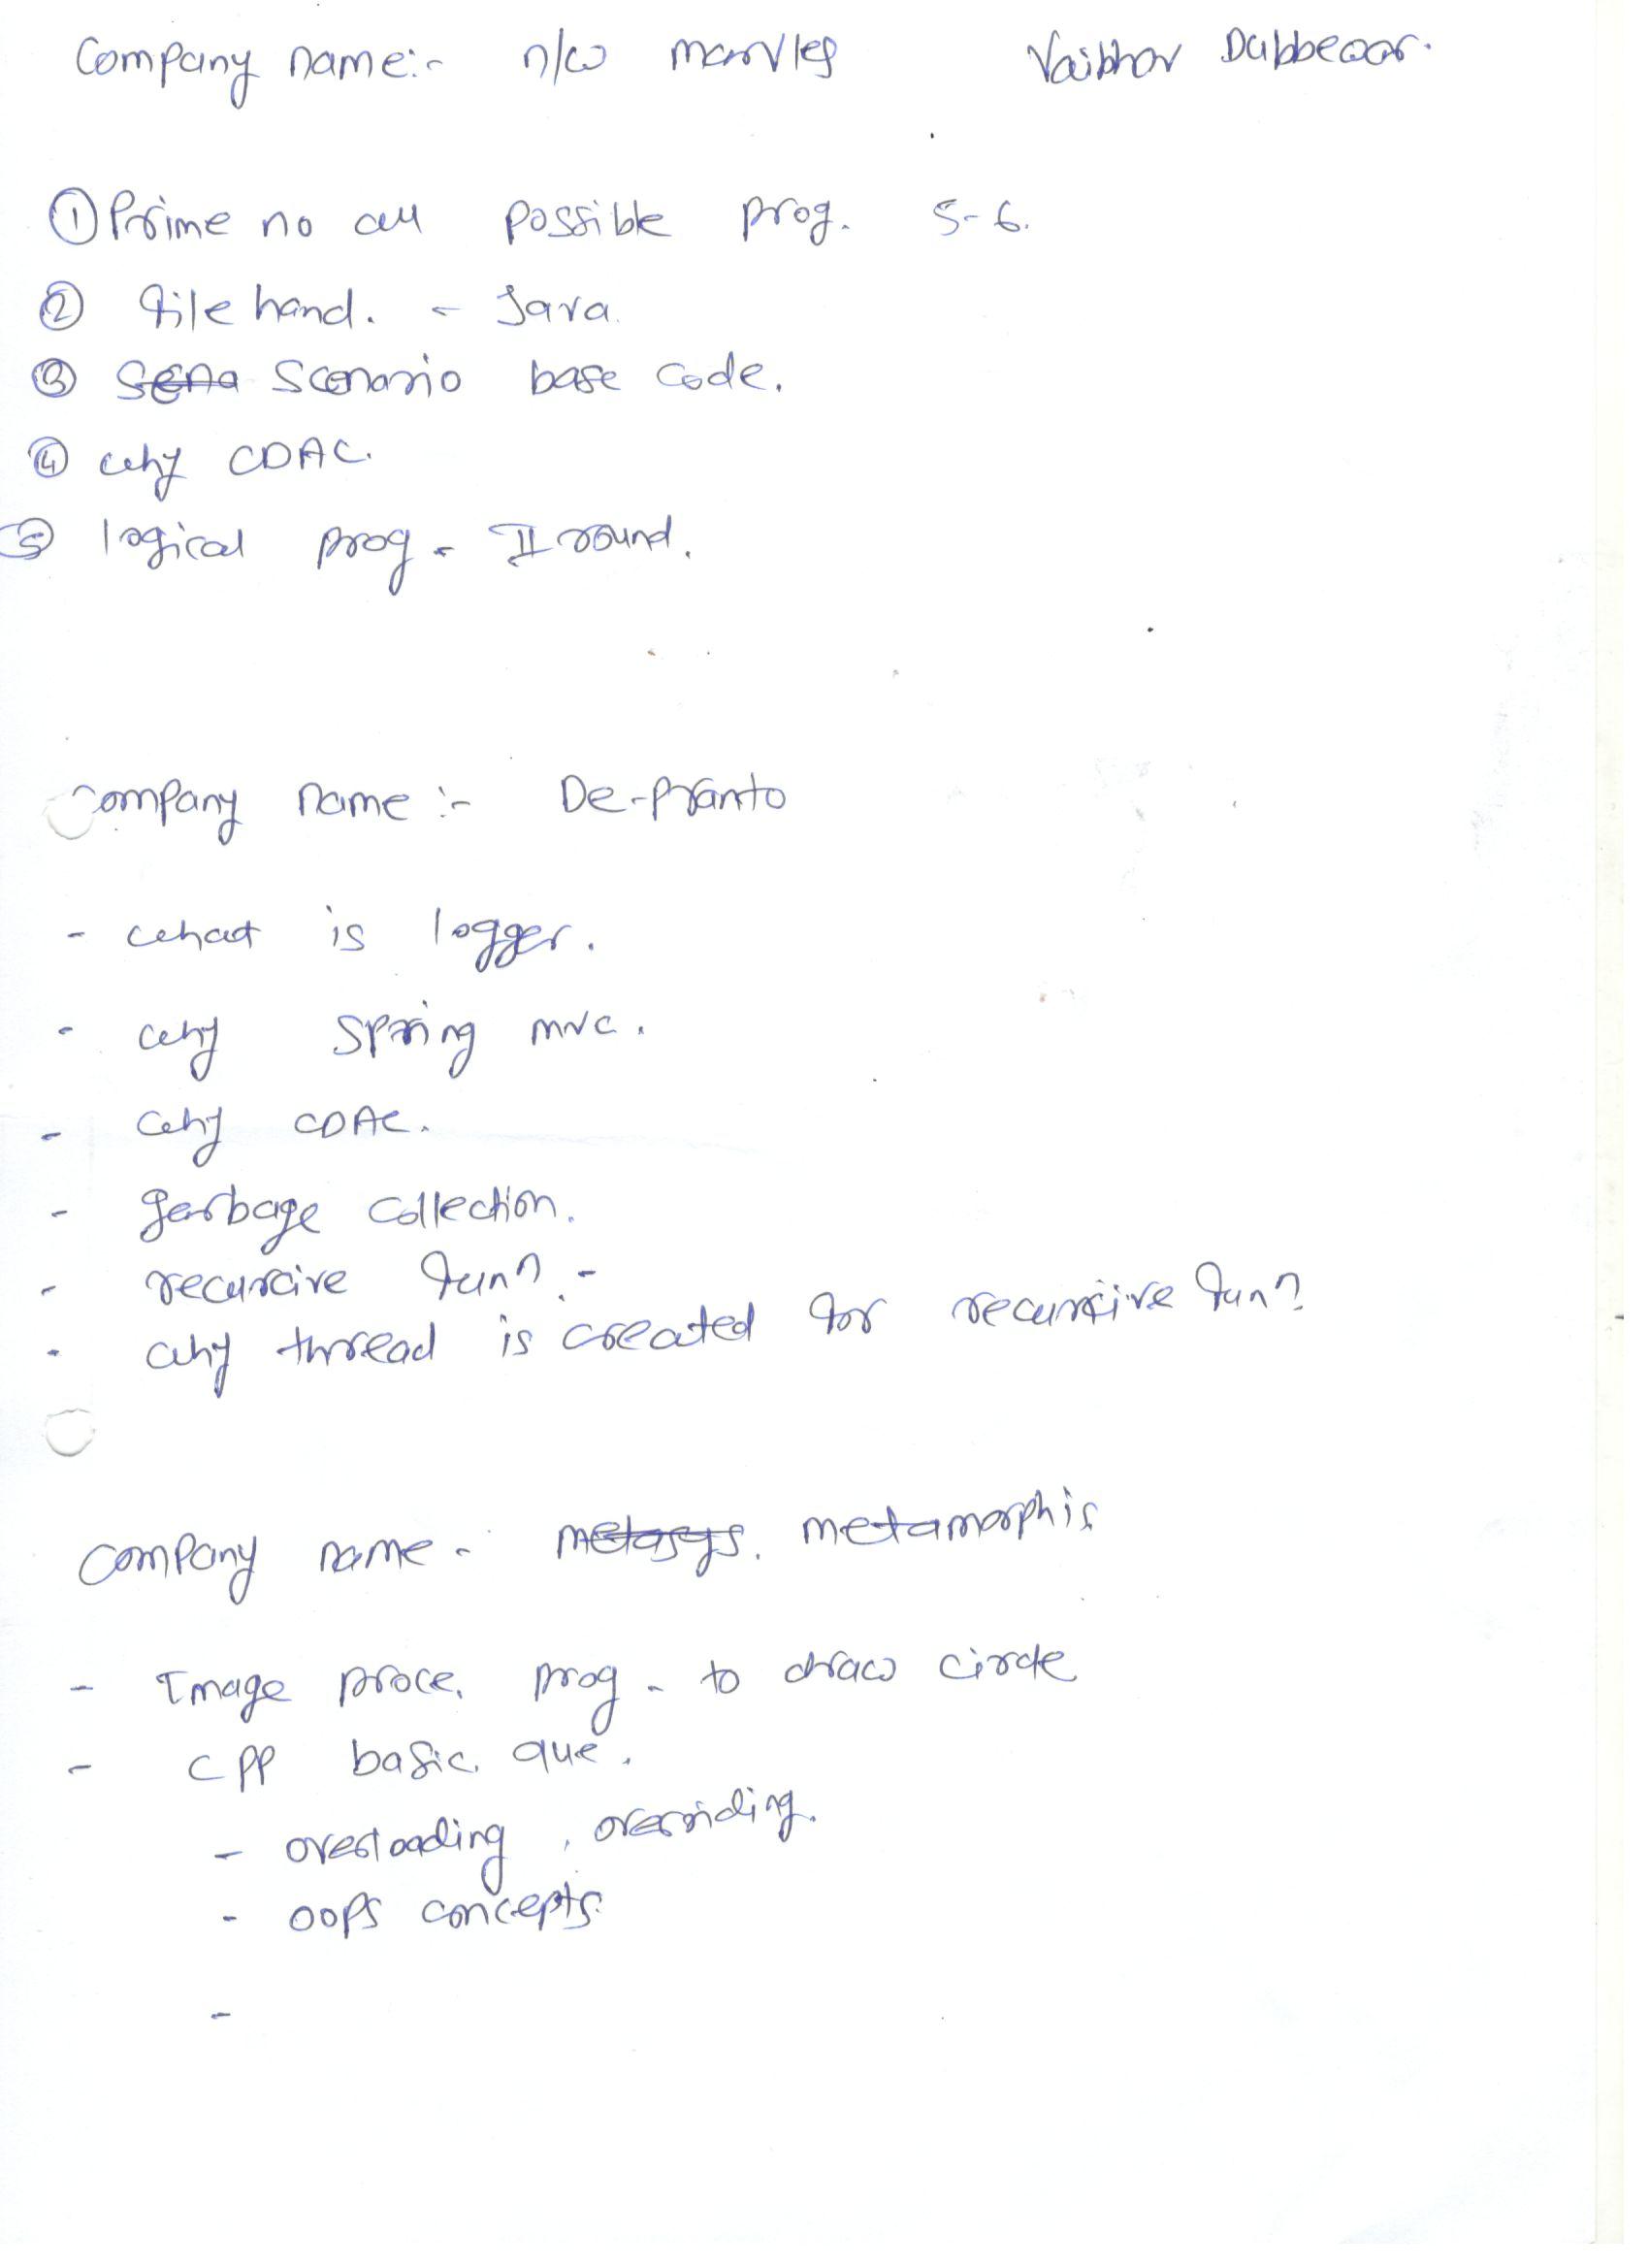 Company name:- n/w marvles Vaibhav Dabbewar.
① Prime no all possible prog. 5-6.
② file hand. - Java.
③ Sena Scenario base code.
④ why CDAC.
⑤ logical prog - II round.
Company name :- De-pranto
- what is logger.
- why spring mvc.
- why CDAC.
- garbage collection.
- recursive funn. -
- why thread is created for recursive funn
Company name - metasys. metamorphis
- Image proce. prog - to draw circle
- cpp basic que.
- overloading, overriding.
- oops concepts.
-